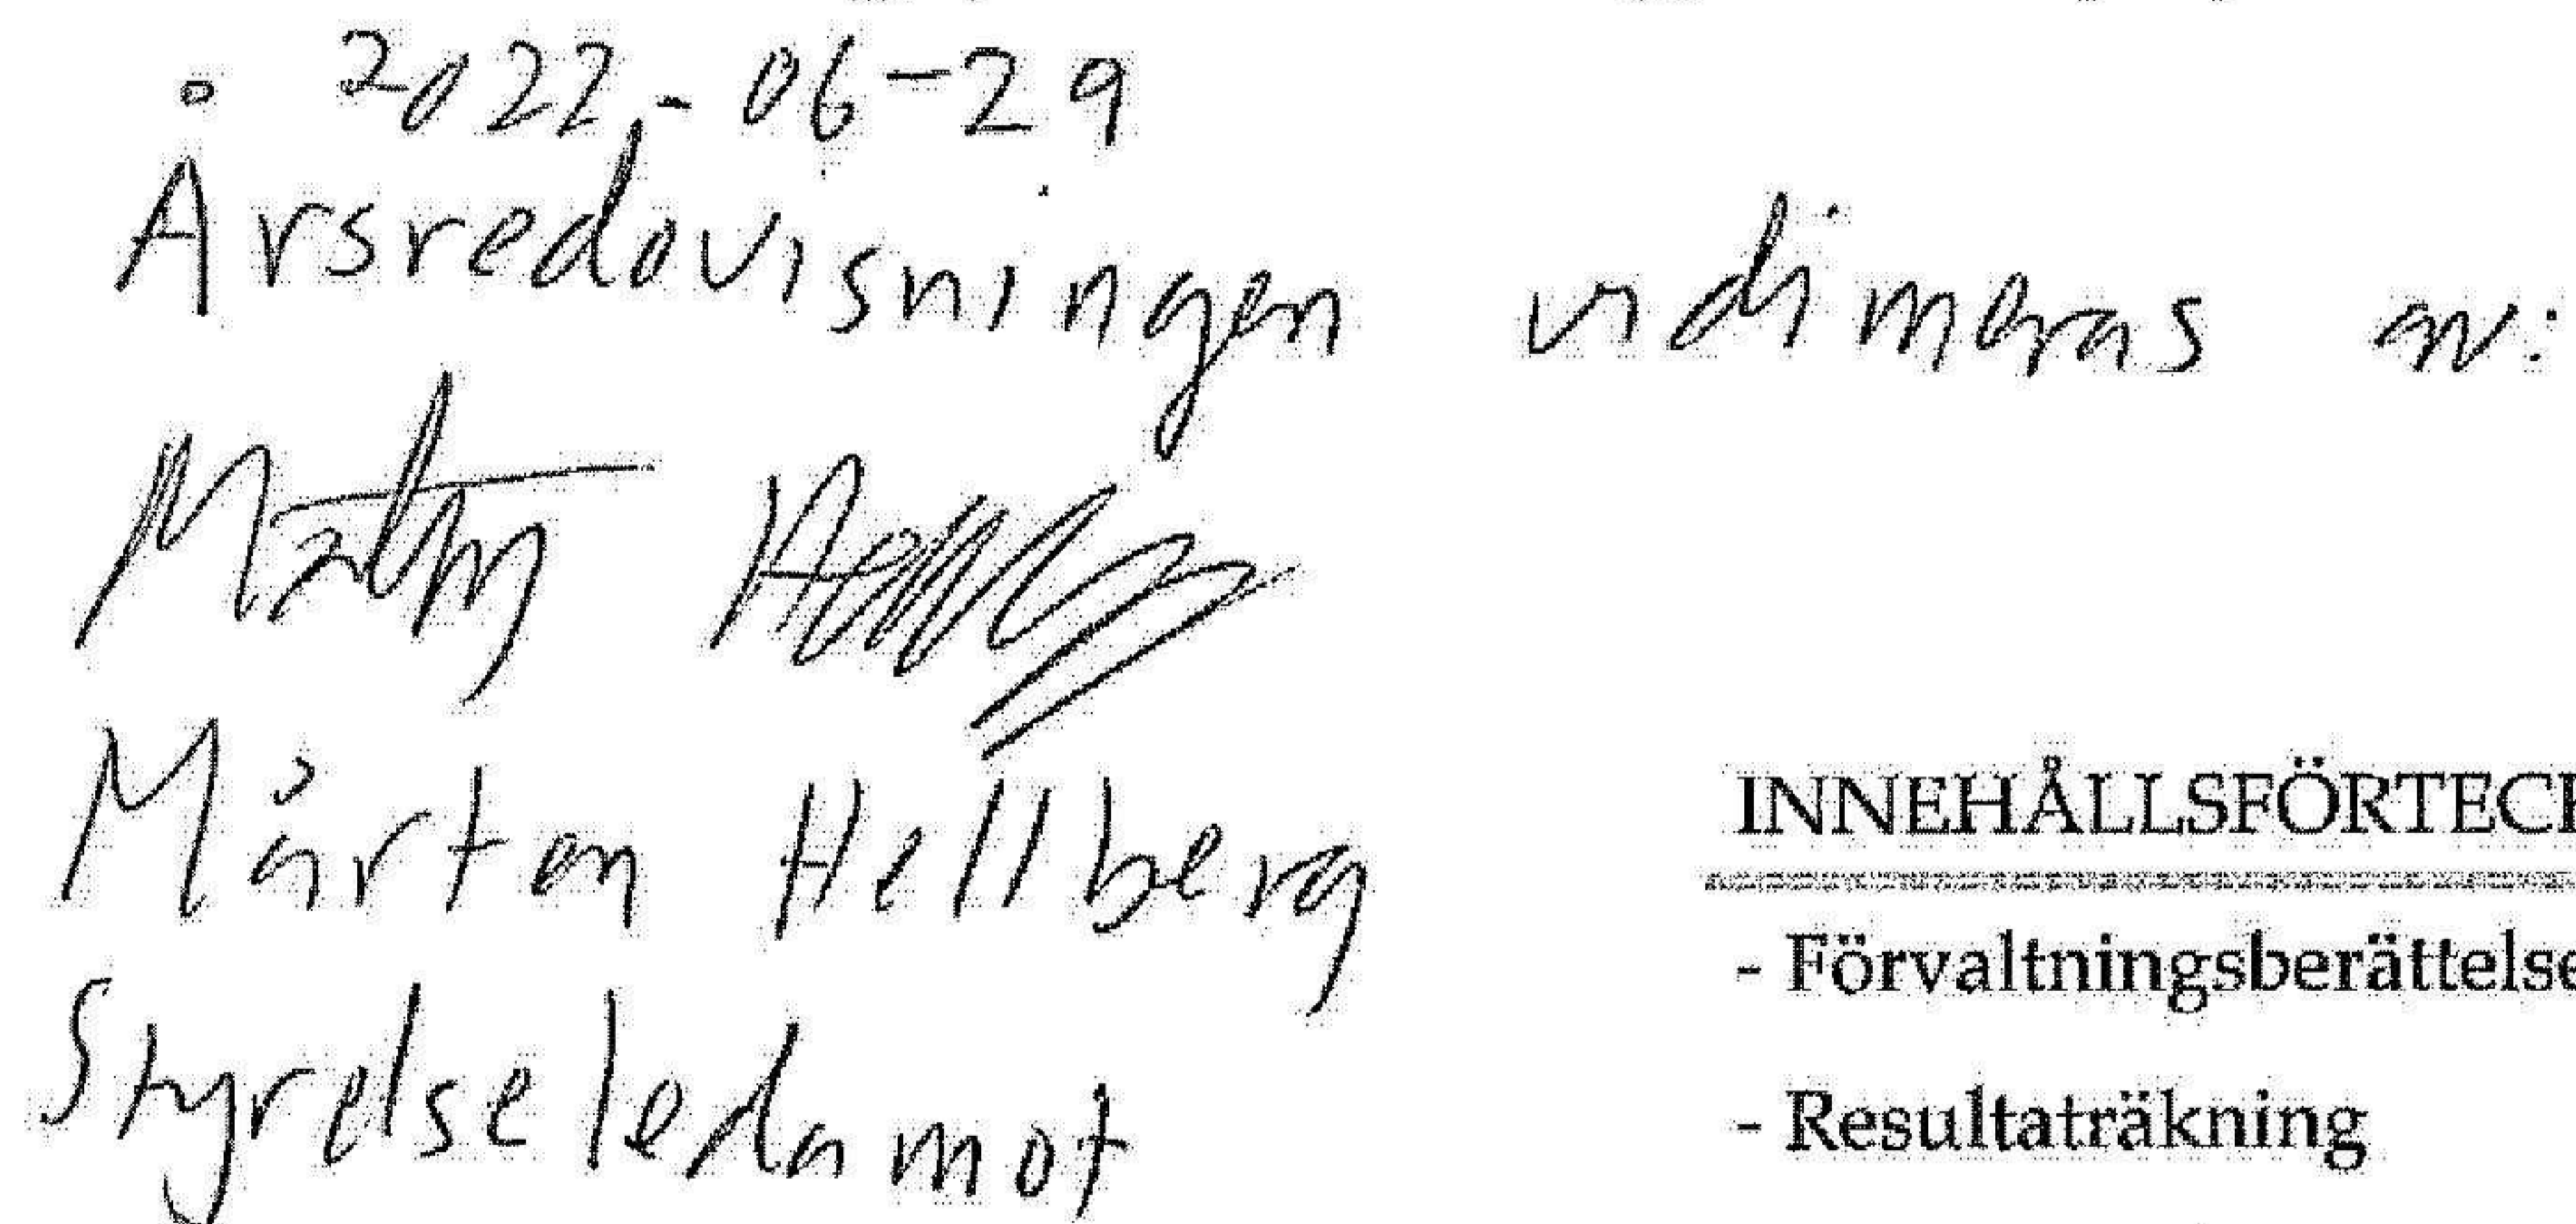 2022-06-29
Årsredovisningen vidimeras av:
Mårten Hellberg
Styrelseledamot
INNEHÅLLSFÖRTECK
- Förvaltningsberättelse
- Resultaträkning